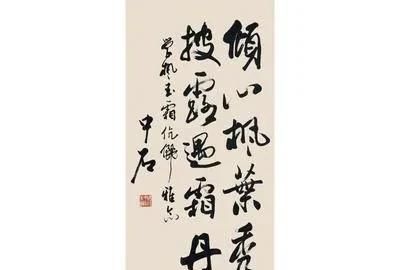 傾心楓葉秀
披露遇霜丹
学楓玉霜伉儷雅念
中石